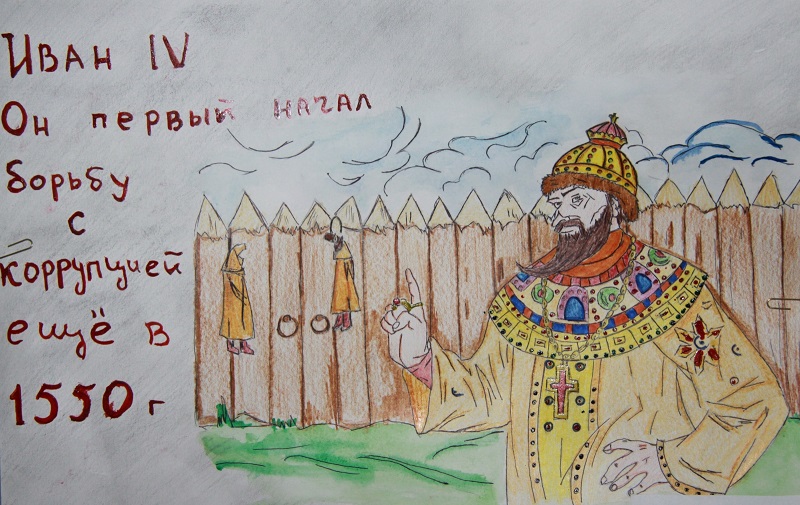 Иван IV
Он первый начал
борьбу
с
коррупцией
ещё в
1550 г